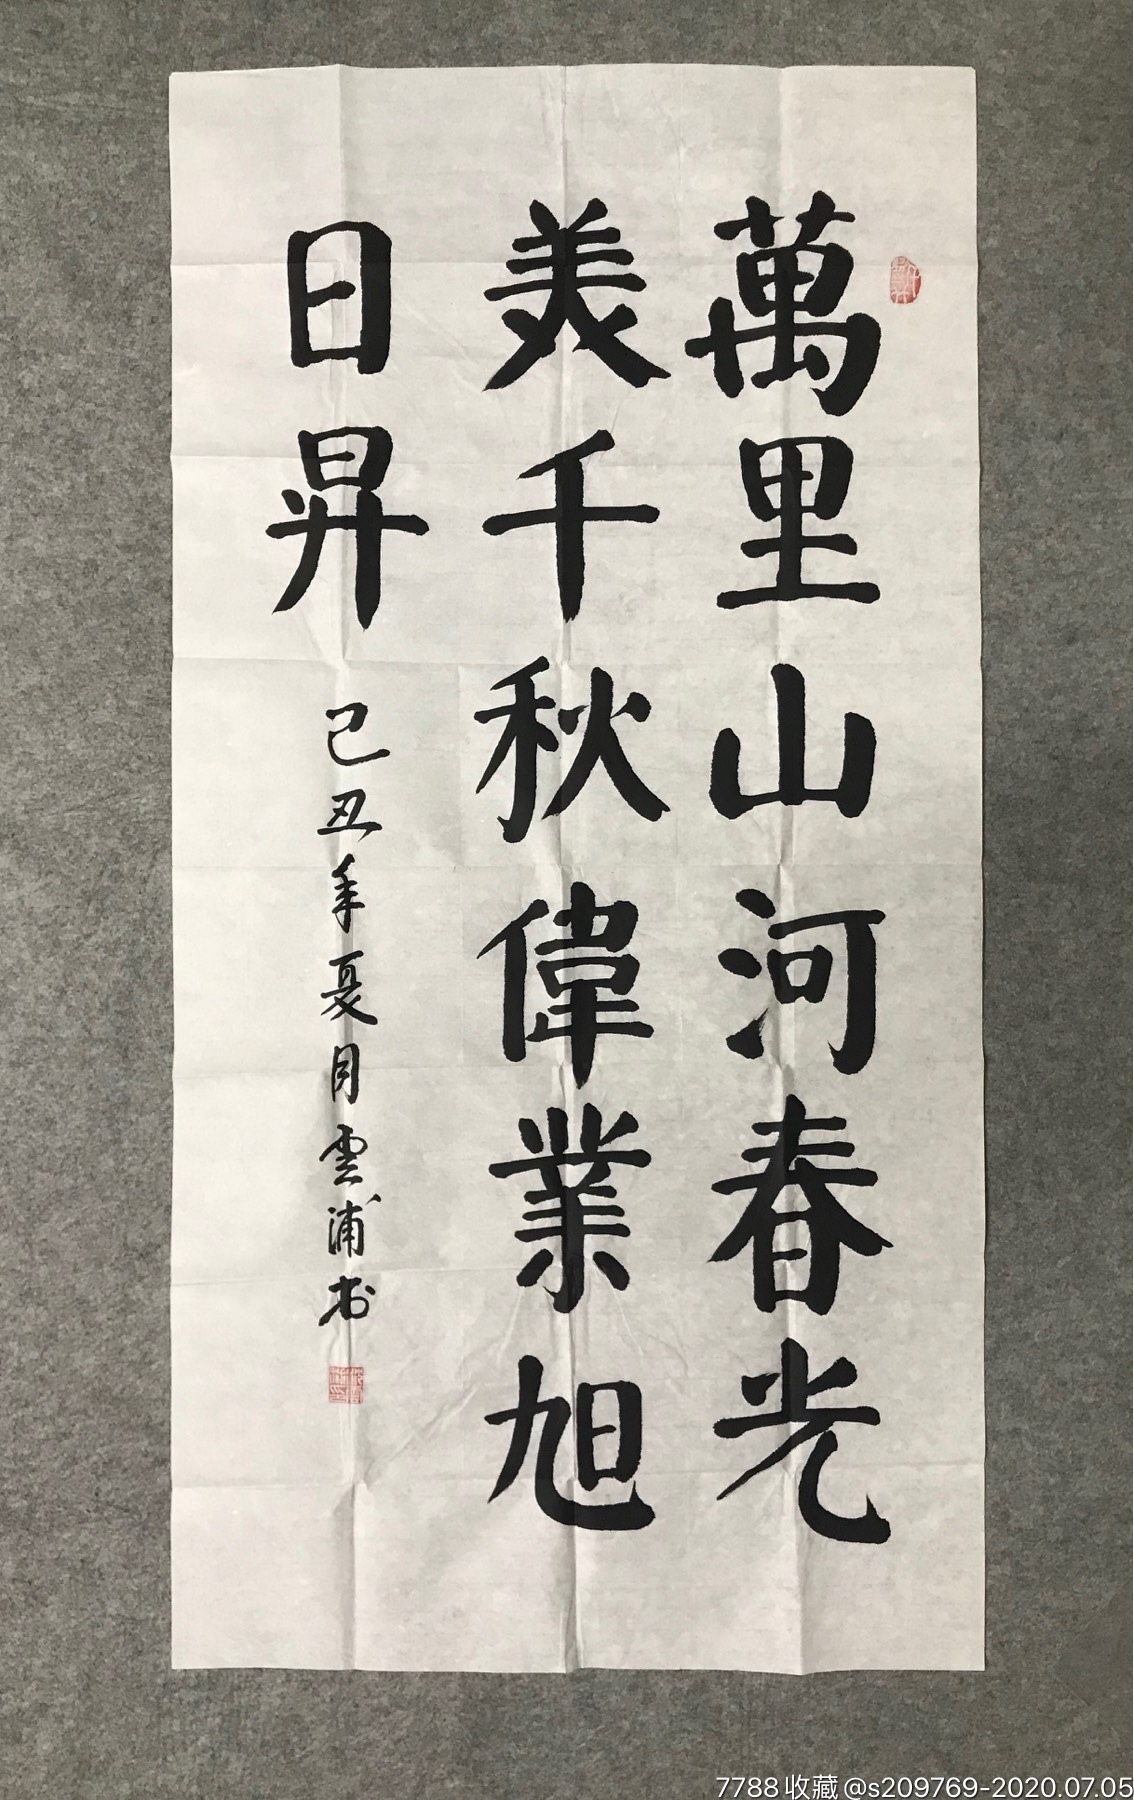 萬里山河春光
美千秋偉業旭
日昇
己丑年夏月雲浦书
7788收藏@s209769-2020.07.05